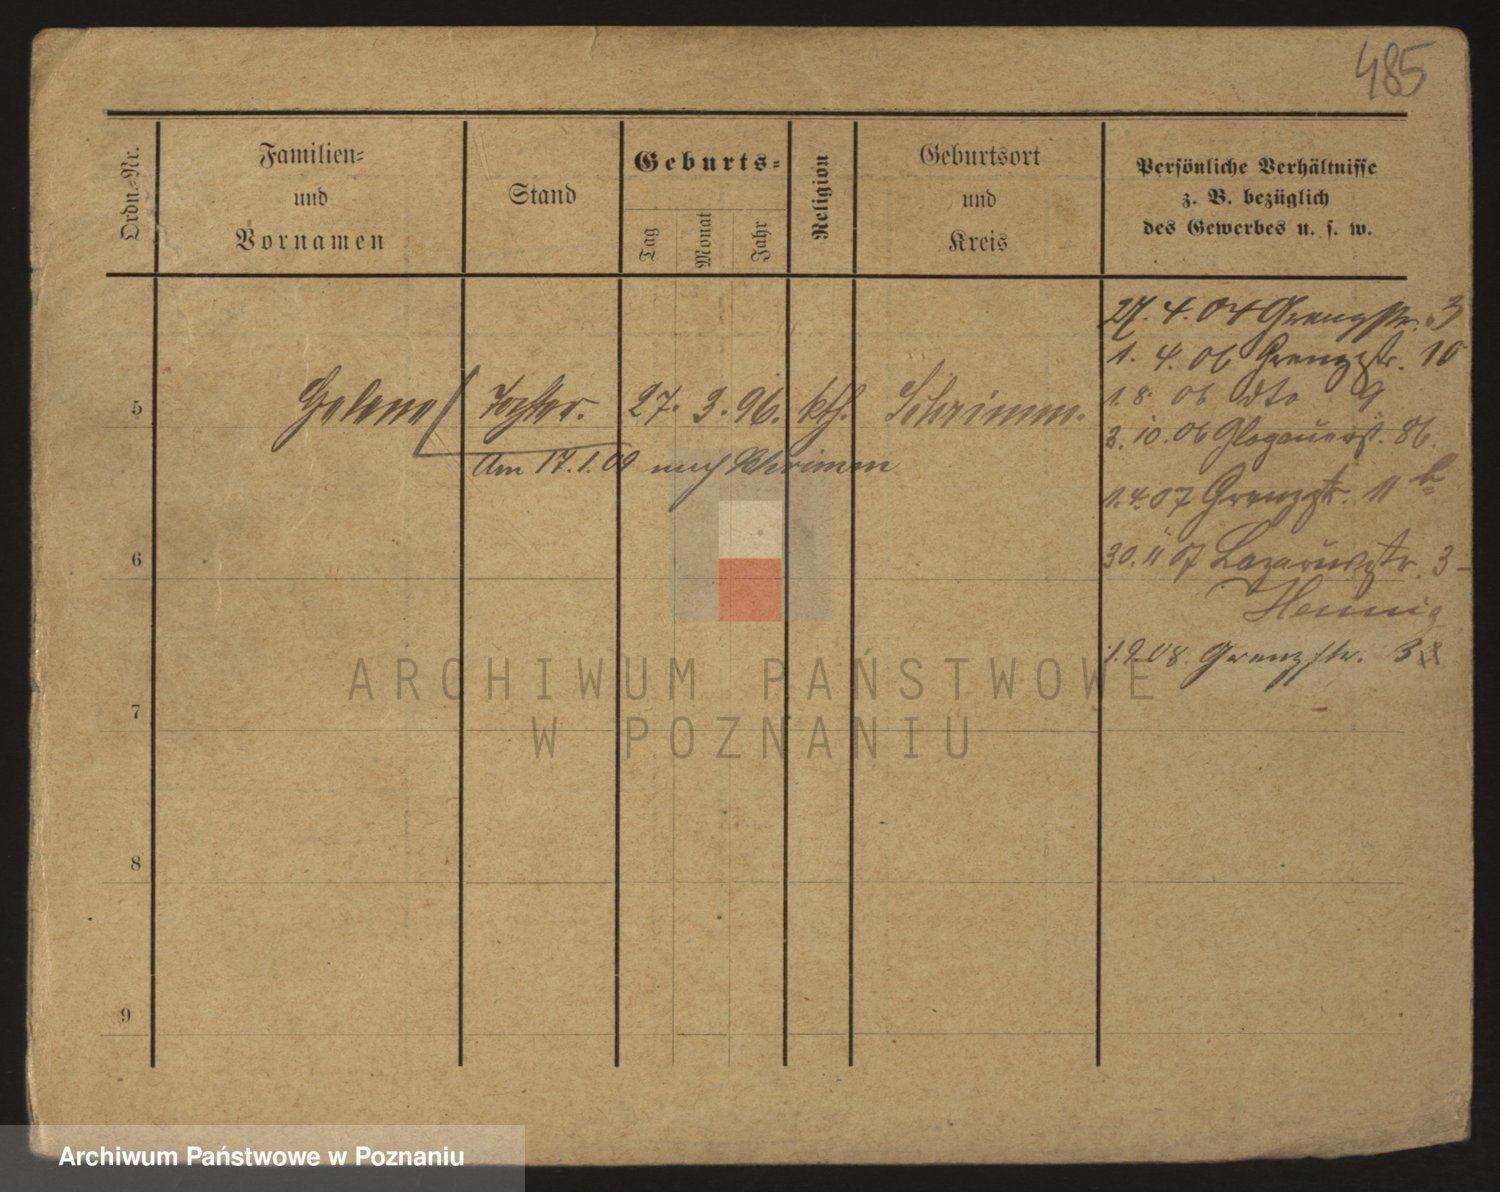 485
Ordn.-Nr.
Familien-
und
Vornamen
Stand
Geburts-
Tag
Monat
Jahr
Religion
Geburtsort
und
Kreis
Persönliche Verhältnisse
z. B. bezüglich
des Gewerbes u. s. w.
27. 4. 04 Grenzstr. 3
1. 4. 06 Grenzstr. 10
1. 8. 06 dto 9
5 Helene Tochter. 27. 3. 96. kth. Schrimm.
2. 10. 06 Glogauerst. 86.
Am 17. 1. 09 nach Schrimm
1. 4. 07 Grenzstr. 11 b
6
30. 11 07 Lazarusstr. 3
Hennig
1. 9. 08. Grenzstr.
7
8
9
ARCHIWUM PAŃSTWOWE
W POZNANIU
Archiwum Państwowe w Poznaniu